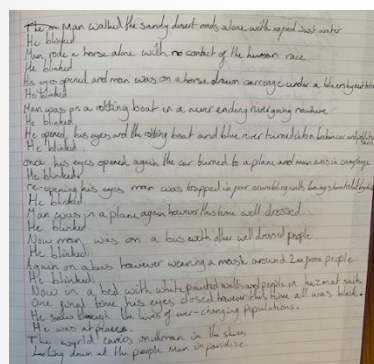 Man walked the sandy desert roads alone with no food just water
He blinked
Man rode a horse alone with no contact of the human race
He blinked
His eyes opened and man was on a horse drawn carriage under a blue sky
He blinked
Man was on a rotting boat in a never ending river going nowhere
He blinked
He opened his eyes and the rotting boat and blue river turned into
He blinked
once his eyes opened again the car turned to a plane and man was in
He blinked
re-opening his eyes man was trapped in four crumbling walls being
He blinked
Man was in a plane again however this time well dressed
He blinked
Now man was on a bus with other well dressed people
He blinked
Again on a bus however wearing a mask around 2m from people
He blinked
Now in a bed with white painted walls and people in hazmat suits
One final time his eyes closed however this time all was black.
He sailed through the lives of ever-changing populations.
He was at peace.
The world carries on man in the skies
Looking down at the people man in paradise